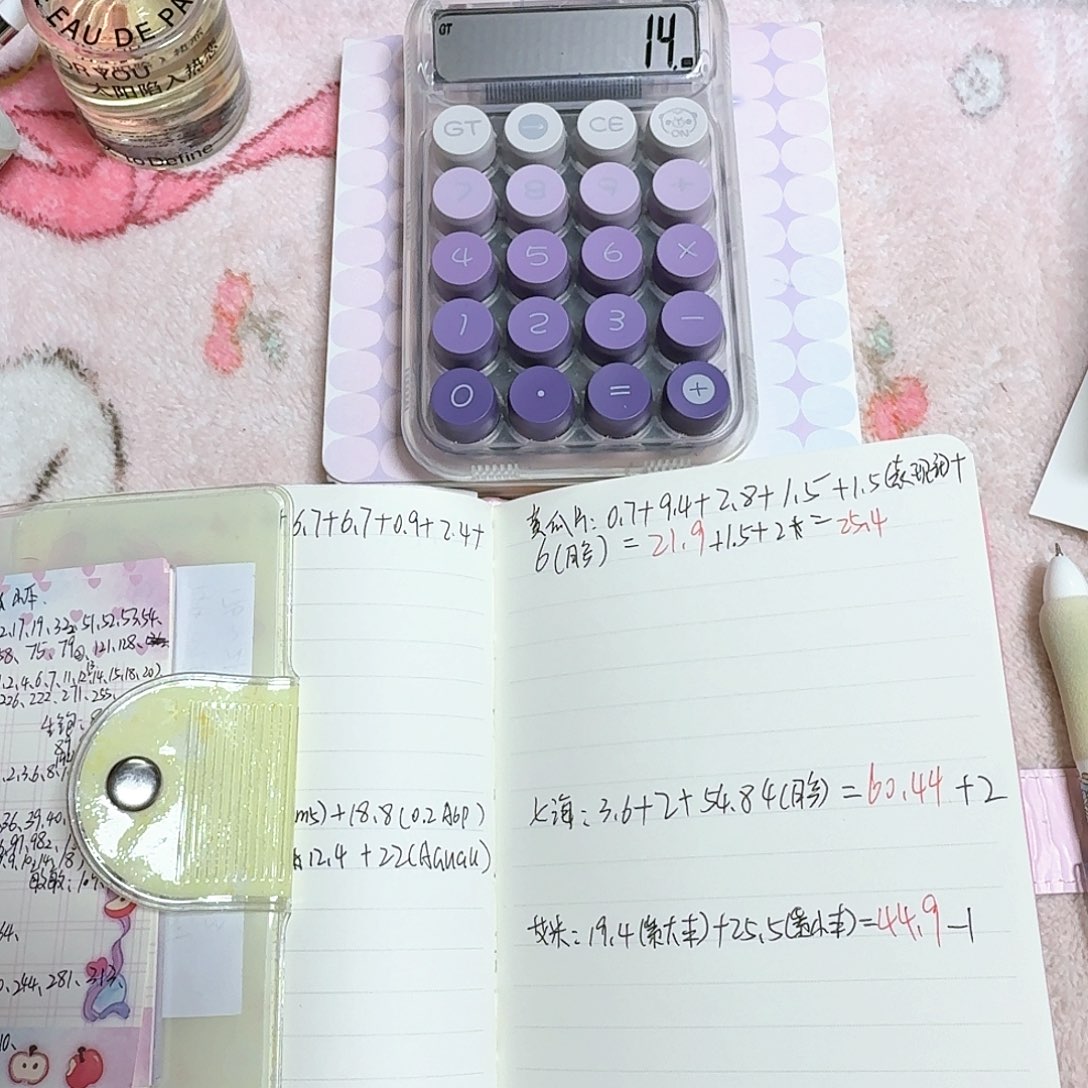 EAU DE PA
OR YOU
太阳陷入热恋
to Define
GT
14.
GT → CE ON
7 8 9 ÷
4 5 6 ×
1 2 3 −
0 · = +
6.7+6.7+0.9+2.4+
黄瓜片: 0.7+9.4+2.8+1.5+1.5(表现和)+
6(月亏) = 21.9+1.5+2 = 25.4
小车、
2、17、19、32、51、52、53、54、
58、75、79、121、128、
1、2、4、6、7、11、12、13、14、15、18、20)
226、222、271、255、
2、3、6、8、
36、39、40、
5、97、982、
9、9、10、14、18)
64、
0、244、281、313、
10、
m5)+18.8(0.2A6p)
12.4 +22(Aguau)
七海: 3.6+2+54.84(月亏) = 60.44 +2
艾米: 19.4(紫大车)+25.5(墨小车)=44.9 -1